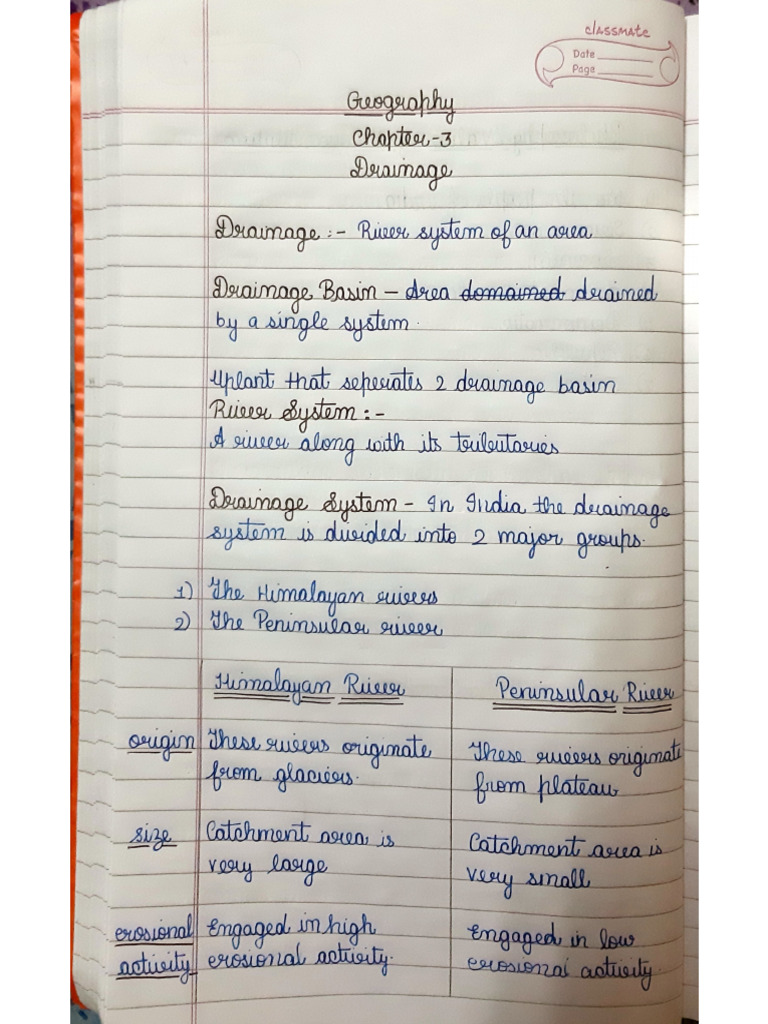 classmate
Date
Page
Geography
Chapter-3
Drainage
Drainage :- River system of an area
Drainage Basin - Area domained drained
by a single system.
Uplant that seperates 2 drainage basin
River System :-
A river along with its tributaries
Drainage System - In India the drainage
system is divided into 2 major groups.
1) The Himalayan rivers
2) The Peninsular river
Himalayan River Peninsular River
origin These rivers originate These rivers originate
from glaciers. from plateau
size Catchment area is Catchment area is
very large very small
erosional Engaged in high Engaged in low
activity erosional activity. erosional activity.